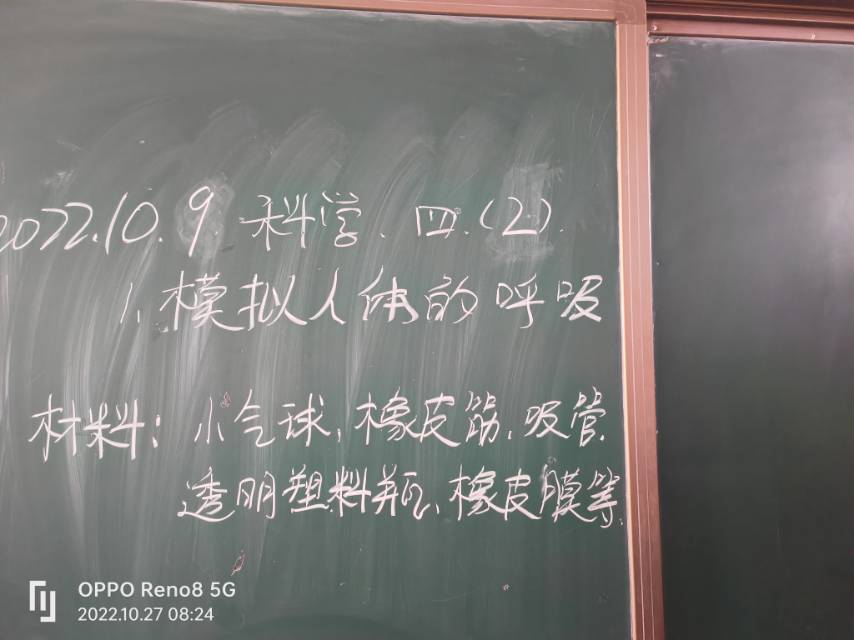 2022.10.9.科学、四.(2).
1、模拟人体的呼吸
材料：小气球，橡皮筋、吸管
透明塑料瓶、橡皮膜等.
OPPO Reno8 5G
2022.10.27 08:24